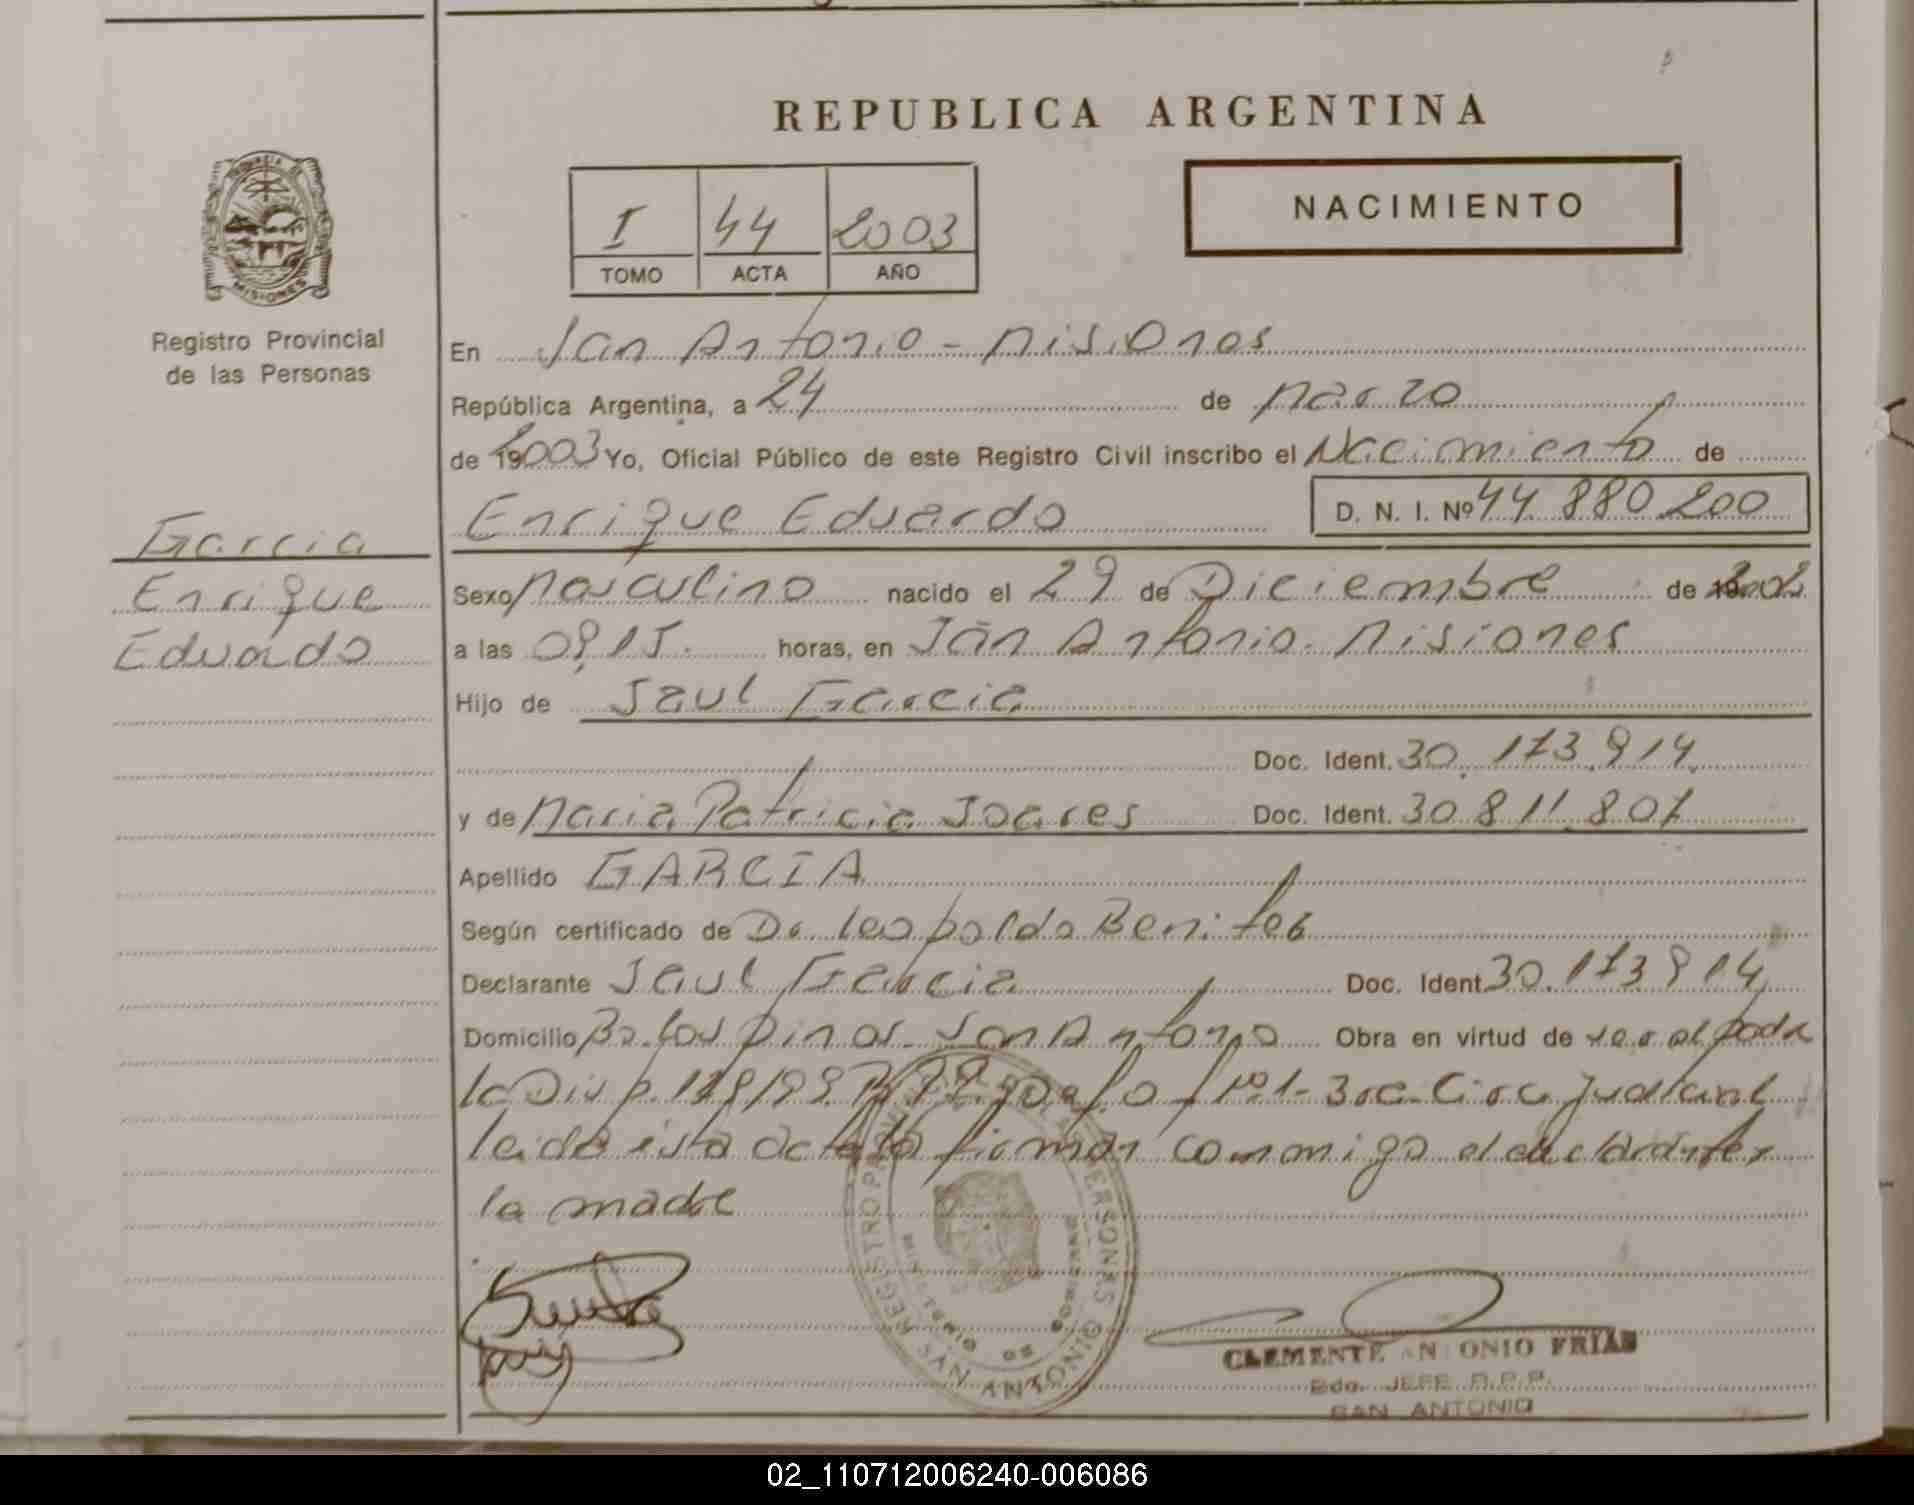 REPUBLICA ARGENTINA
NACIMIENTO
I 44 2003
TOMO ACTA AÑO
MISIONES
Registro Provincial
de las Personas
Garcia
Enrique
Eduardo
En San Antonio - Misiones
República Argentina, a 24 de Marzo
de 2003 Yo, Oficial Público de este Registro Civil inscribo el Nacimiento de
Enrique Eduardo D. N. I. Nº 44.880.200
Sexo Masculino nacido el 29 de Diciembre de 2002
a las 09,15. horas, en San Antonio. Misiones
Hijo de Saul Garcia
Doc. Ident. 30.173.914.
y de Maria Patricia Soares Doc. Ident. 30.811.807
Apellido GARCIA
Según certificado de Dr. Leopoldo Benites
Declarante Saul Garcia Doc. Ident 30.173.914
Domicilio Bo. Los Pinos. San Antonio Obra en virtud de
la Disp. Nº 1- 3ra. Circ. Judicial
leida esta acta la firman conmigo el declarante y
la madre
REGISTRO PERSONAS
SAN ANTONIO
CLEMENTE ANTONIO FRIAS
JEFE R.P.P.
SAN ANTONIO
02_110712006240-006086